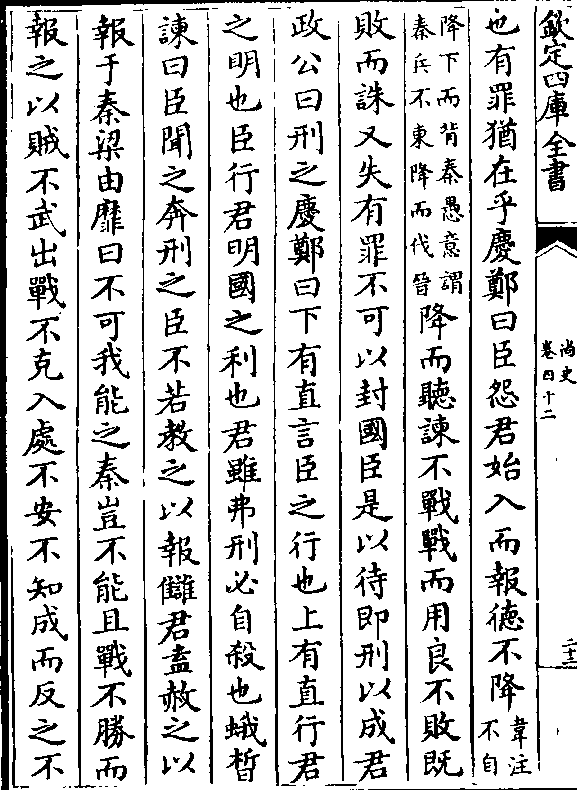 欽定四庫全書
尚史
卷四十二
二十三
也有罪猶在乎慶鄭曰臣怨君始入而報德不降韋注不自
降下而背秦愚意謂秦兵不東降而伐晉降而聽諫不戰戰而用良不敗既
敗而誅又失有罪不可以封國臣是以待即刑以成君
政公曰刑之慶鄭曰下有直言臣之行也上有直行君
之明也臣行君明國之利也君雖弗刑必自殺也蛾晳
諫曰臣聞之奔刑之臣不若教之以報讎君盍赦之以
報于秦梁由靡曰不可我能之秦豈不能且戰不勝而
報之以賊不武出戰不克入處不安不知成而反之不